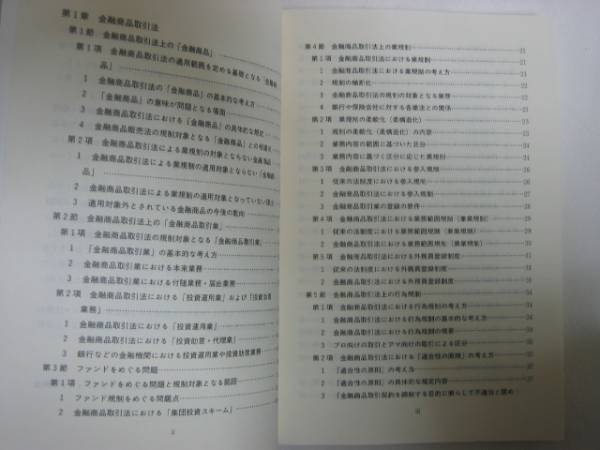 第1章 金融商品取引法
第1節 金融商品取引法上の「金融商品」
第1項 金融商品取引法の適用範囲を定める基礎となる「金融商
品」
1 金融商品取引法の「金融商品」の基本的な考え方
2 「金融商品」の意味が問題となる場面
3 金融商品取引法における「金融商品」の具体的な規定
4 金融商品販売法の規制対象となる「金融商品」との相違点
第2項 金融商品取引法による業規制の対象とならない金融商品
1 金融商品取引法による業規制の適用対象とならない「金融商
品」
2 金融商品取引法による業規制の適用対象となっていない
3 適用対象外とされている金融商品の今後の動向
第2節 金融商品取引法上の「金融商品取引業」
第1項 金融商品取引法の規制対象となる「金融商品取引業」
1 「金融商品取引業」の基本的な考え方
2 金融商品取引業における本来業務
3 金融商品取引業における付随業務・届出業務
第2項 金融商品取引法における「投資運用業」および「投資助言
業務」
1 金融商品取引法における「投資運用業」
2 金融商品取引法における「投資助言・代理業」
3 銀行などの金融機関における投資運用業や投資助言業務
第3節 ファンドをめぐる問題
第1項 ファンドをめぐる問題と規制対象となる範囲
1 ファンド規制をめぐる問題点
2 金融商品取引法における「集団投資スキーム」
ii
第4節 金融商品取引法上の業規制 21
第1項 金融商品取引法における業規制 21
1 金融商品取引法における業規制の考え方
2 規制の横断化
3 金融商品取引法の規制の対象となる業務
4 銀行や保険会社に対する各業法との関係
第2項 業規制の柔軟化（柔構造化）
1 規制の柔軟化（柔構造化）の内容
2 業務内容の範囲に基づいた区分
3 業務内容に基づく区分に応じた業規制
第3項 金融商品取引法における参入規制
1 従来の法制度における参入規制
2 金融商品取引法における参入規制
3 金融商品取引業者の登録の要件
第4項 金融商品取引法における業務範囲規制（兼業規制）
1 従来の法制度における業務範囲規制（兼業規制）
2 金融商品取引法における業務範囲規制（兼業規制）
第5項 金融商品取引法における外務員登録制度
1 従来の法制度における外務員登録制度
2 金融商品取引法における外務員登録制度
第5節 金融商品取引法上の行為規制
第1項 金融商品取引法における行為規制の考え方
1 金融商品取引法における行為規制の基本的な考え方
2 金融商品取引法における行為規制の概要
3 プロ向けの取引とアマ向けの取引による区分
第2項 金融商品取引法における「適合性の原則」の考え方
1 「適合性の原則」の考え方
2 「適合性の原則」の具体的な規定内容
3 「金融商品取引契約を締結する目的に照らして不適当と認め
iii